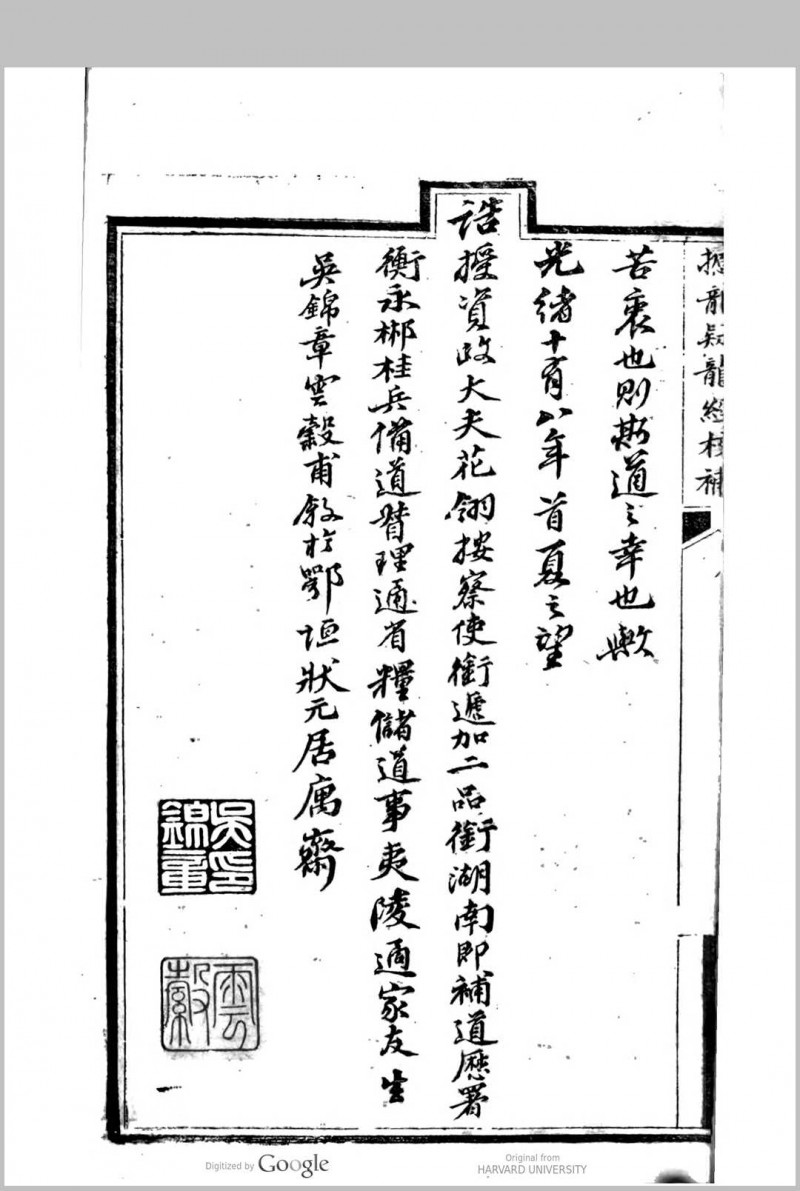 撼龍疑龍經校補
苦衷也則斯道之幸也歟
光緒十有八年首夏之望
誥授資政大夫花翎按察使銜遞加二品銜湖南即補道歷署
衡永郴桂兵備道督理通省糧儲道事夷陵通家友生
吳錦章雲穀甫敘於鄂垣狀元居寓齋
吳錦章印
雲穀
Digitized by Google
Original from
HARVARD UNIVERSITY